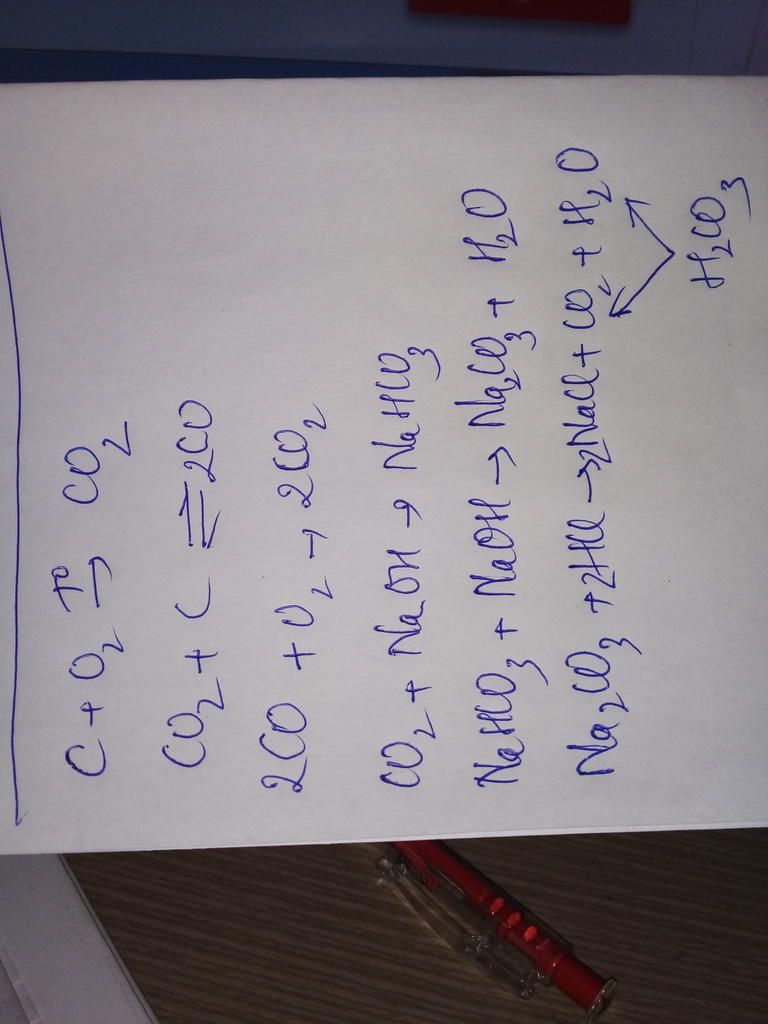 C + O₂ →(t°) CO₂
CO₂ + C ⇌ 2CO
2CO + O₂ → 2CO₂
CO₂ + NaOH → NaHCO₃
NaHCO₃ + NaOH → Na₂CO₃ + H₂O
Na₂CO₃ + 2HCl → 2NaCl + CO₂ + H₂O
H₂CO₃